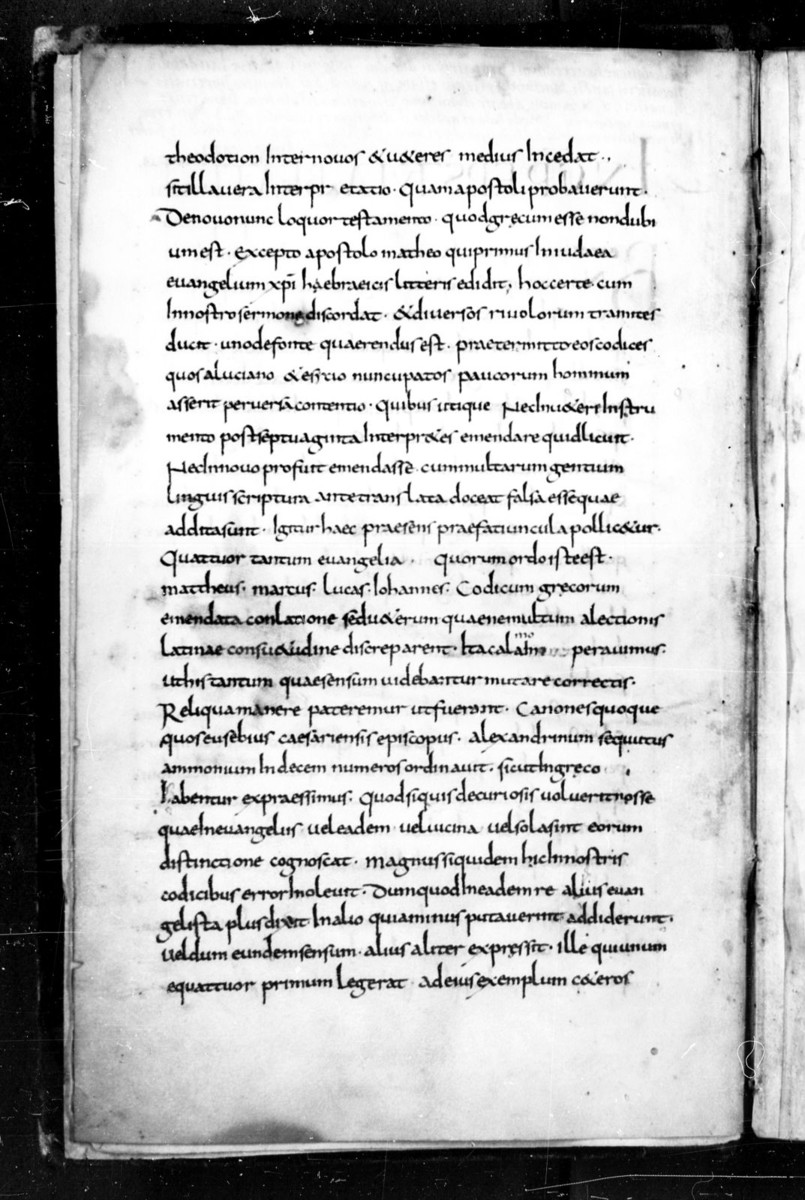 theodotion Inter novos & u&eres medius Incedat ·,
sit illa uera Interpr etatio · Quam apostoli probauerunt ·
De novo nunc loquor testamento · quod gręcum esse non dubi
um est · excepto apostolo matheo qui primus In iudaea
euangelium xpī hęebraeicis litteris edidit, hoc certe cum
In nostro sermone discordat · & diversos rivolorum tramites
ducit · uno de fonte quaerendus est · praetermitto eos codices
quos a luciano & esycio nuncupatos paucorum hominum
asserit perversa contentio · Quibus utique Nec In u&eri Instru
mento post septuaginta Interpr&es emendare quid licuit ·
Nec In novo profuit emendasse · cum multarum gentium
linguis scriptura ante translata doceat falsa esse quae
addita sunt · Igitur haec praesens praefatiuncula pollic&ur ·
Quattuor tantum evangelia · Quorum ordo iste est ·
mattheus · marcus · lucas · Iohannes · Codicum gręcorum
emendata conlatione sed u&erum quae ne multum a lectionis
latinae consu&udine discreparent · Ita calamo peravimus ·
Ut his tantum quae sensum uidebantur mutare correctis ·
Reliqua manere pateremur ut fuerant · Canones quoque
quos eusebius caesariensis episcopus · alexandrinum sequutus
ammonium In decem numeros ordinauit · sicut In gręco
habentur expraessimus · Quod si quis de curiosis voluerit nosse
quae In evangeliis vel eadem · vel vicina vel sola sint eorum
distinctione cognoscat · Magnus siquidem hic In nostris
codicibus error Inoleuit · Dum quod In eadem re alius evan
gelista plus dixit In alio quia minus putaverint addiderunt ·
vel dum eundem sensum · alius aliter expressit · ille qui unum
e quattuor primum legerat · ad eius exemplum c&eros